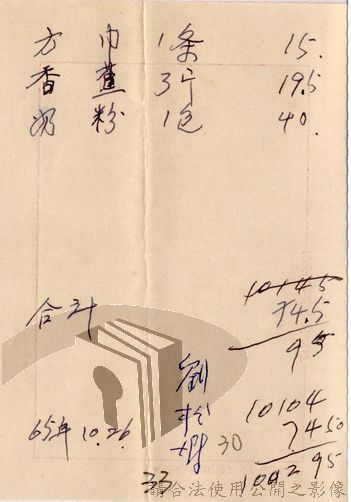 方 巾 1条 15.
香 蕉 3斤 19.5
奶 粉 1包 40.
10145
合計 74.5
95
10104
65年 10.26. 30 7450
33 10029 5
請合法使用公開之影像